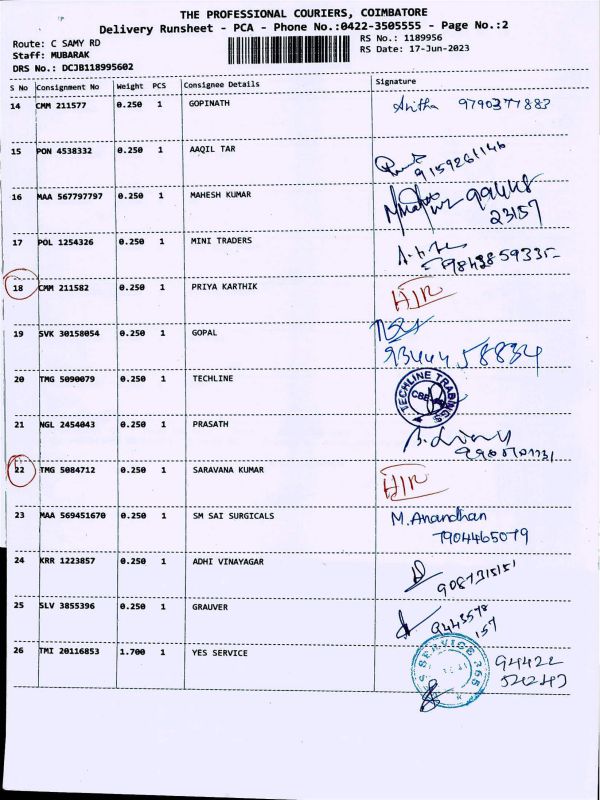 THE PROFESSIONAL COURIERS, COIMBATORE
Delivery Runsheet - PCA - Phone No.:0422-3505555 - Page No.:2
Route: C SAMY RD
RS No.: 1189956
Staff: MUBARAK
RS Date: 17-Jun-2023
DRS No.: DCJB118995602
S No Consignment No Weight PCS Consignee Details Signature
14 CMM 211577 0.250 1 GOPINATH Anitha 9790377883
15 PON 4538332 0.250 1 AAQIL TAR 9159261146
16 MAA 567797797 0.250 1 MAHESH KUMAR 99448
23157
17 POL 1254326 0.250 1 MINI TRADERS
9842859335
18 CMM 211582 0.250 1 PRIYA KARTHIK HIR
19 SVK 30158054 0.250 1 GOPAL
9344458834
20 TMG 5090079 0.250 1 TECHLINE TECHLINE TRADINGS
CBE
21 NGL 2454043 0.250 1 PRASATH
22 TMG 5084712 0.250 1 SARAVANA KUMAR HIR
23 MAA 569451670 0.250 1 SM SAI SURGICALS M. Anandhan
7904465079
24 KRR 1223857 0.250 1 ADHI VINAYAGAR 9087315151
25 SLV 3855396 0.250 1 GRAUVER 9443578
157
26 TMI 20116853 1.700 1 YES SERVICE SERVICE 365 94422